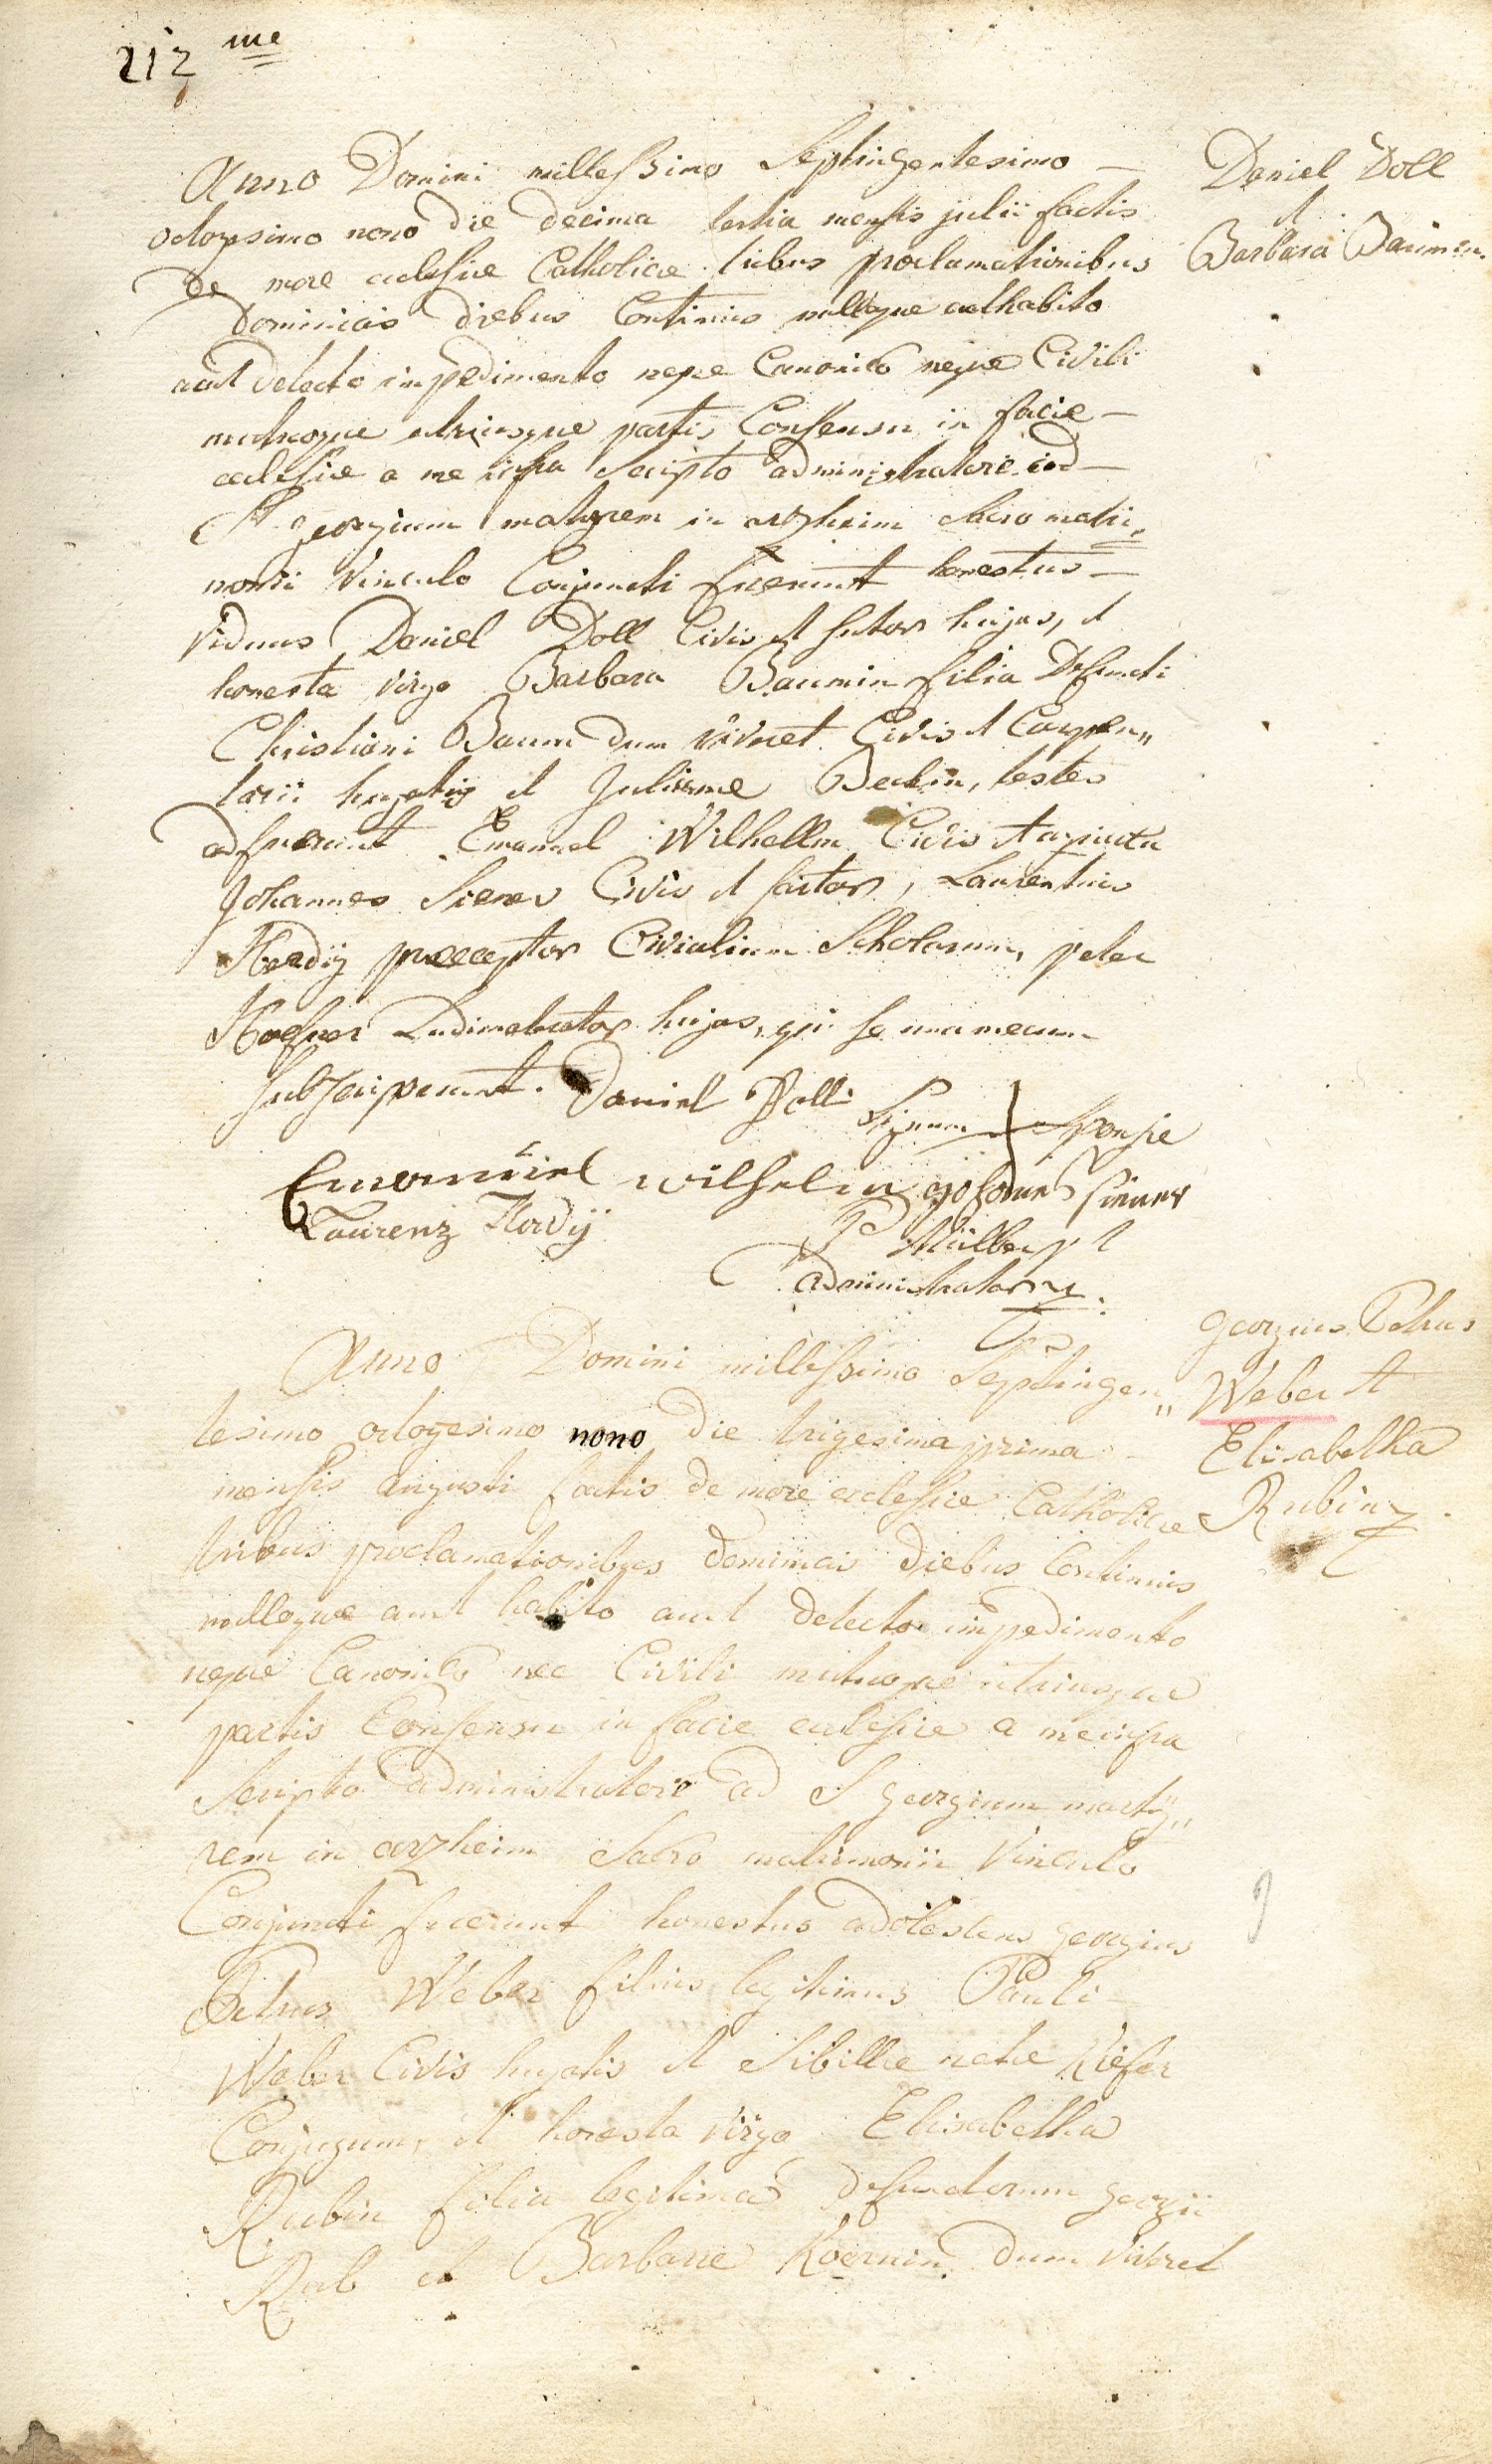 212 me
Anno Domini millessimo Septingentesimo —
octogesimo nono die decima tertia mensis julii factis
de more eclesiæ Catholicæ tribus proclamationibus
Dominicis diebus Continuis nulloque aut habito
aut detecto impedimento neque Canonico neque Civili
mutuoque utriusque partis Consensu in facie —
eclesiæ a me infra scripto administratore ad —
St georgium martyrem in arzheim Sacro matri„
monii Vinculo Conjuncti fuerunt honestus —
Viduus Daniel Doll Civis et sutor hujas, et
honesta virgo Barbara Baumin filia Defuncti
Christiani Baum dum viveret Civis et Carpen„
tarii hujatis et Julianne Beckin, testes
adfuerunt Emanuel Wilhellm Civis et
Johannes Siener Civis et sartor, Laurentius
Hordÿ præceptor Civialium Scholarum, peter
Hoefner Ludimoderator hujas, qui se una mecum
subscripserunt. Daniel Doll Signum Sponsæ
Emanuiel wilhelm Johanes siener
Laurenz Hordÿ
P Müller p t
administrator
Daniel Doll
et
Barbara Baumin
Anno Domini millessimo Septingen„
tesimo octogesimo nono die trigesima prima
mensis augusti factis de more eclesiæ Catholicæ
tribus proclamationibus dominicis diebus Continuis
nulloque aut habito aut detecto impedimento
neque Canonico nec Civili mutuoque utriusque
partis Consensu in facie eclesiæ a me infra
scripto administratore ad S georgium marty„
rem in arzheim Sacro matrimonii Vinculo
Conjuncti fuerunt honestus adolescens georgius
Petrus Weber filius legitimus Pauli
Weber Civis hujatis et Sibillæ natæ Kiefer
Conjugum, et honesta virgo Elisabetha
Rubin filia legitima defunctorum georgii
Rub et Barbaræ Koernin dum viveret
georgius Petrus
Weber et
Elisabetha
Rubin